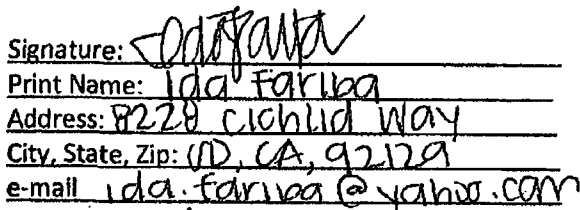 Signature:
Print Name: Ida Fariba
Address: 8228 cichlid way
City, State, Zip: SD, CA, 92129
e-mail ida.fariba@yahoo.com